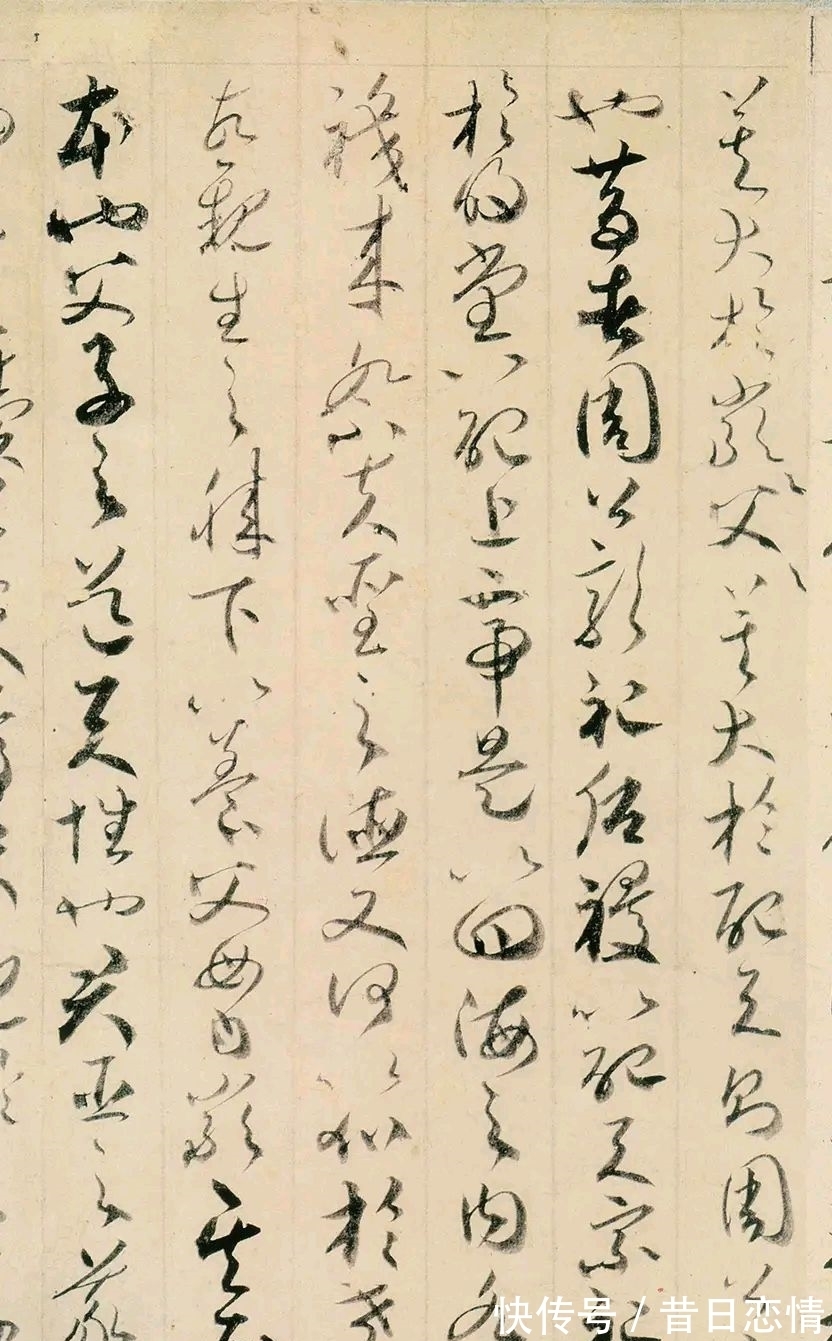 莫大於嚴父〻莫大於配天則周公
也昔者周公郊祀后稷以配天宗祀
於明堂以配上帝是以四海之內各
職來祭夫聖之德又何以加於孝
故親生之膝下以養父母日嚴其
本也父子之道天性也君臣之義
快传号/昔日恋情